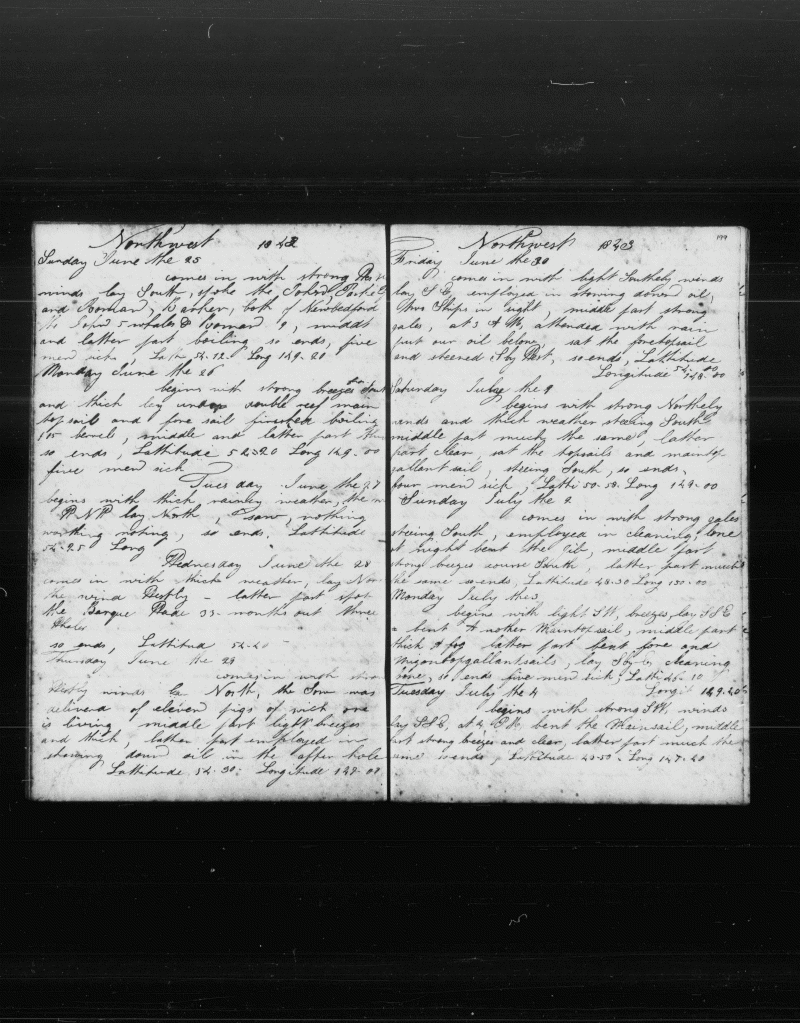 Northwest 1843
Sunday June the 25
comes in with strong
winds lay South, spoke the John & Parker
and Roman, Barker, both of New Bedford
the John 5 whales & Roman 9, middle
and latter part boiling so ends, five
men sick, Latti 54-12 Long 149-20
Monday June the 26
begins with strong breezes
and thick lay under double reef main
top sail and fore sail finished boiling
175 barrel, middle and latter part
so ends, Lattitude 52-20 Long 149-00
five men sick
Tuesday June the 27
begins with thick rainey weather, the
lay North, saw, nothing
worthing noting, so ends, Lattitude
54-25 Long
Wednesday June the 28
comes in with thick weather, lay
the wind Westly - latter part spok
the Barque 33-months out three
Whales
so ends, Lattitud 54-20
Thursday June the 29
comes in with
Westly winds North, the Sow was
deliverd of eleven pigs of wich one
is living middle part light breezes
and thick, latter part employed in
stowing down oil in the after hole
Lattitude 54-30: Longitude 149-00
199
Northwest 1843
Friday June the 30
comes in with light Southely winds
lay S E employed in stowing down oil,
two Ships in sight, middle part strong
gales, at 3 A M, attended with rain
put our oil below, sat the foretopsail
and steered S by West, so ends, Lattitude 54-00
Longitude 148-00
Saturday July the 1
begins with strong Northely
winds and thick weather steeing South
middle part much the same, latter
part clear, sat the topsails and maintop
gallant sail, steeing South, so ends,
four men sick, Latti 50-58 Long 149-00
Sunday July the 2
comes in with strong gales
steeing South, employed in cleaning bone
at night bent the Jib, middle part
strong breezes course South, latter part much
the same so ends, Lattitude 48-30 Long 150-00
Monday July the 3
begins with light S W, breezes, lay S S E
bent A nother Maintopsail, middle part
thick A fog latter part bent fore and
Mizontopgallantsails, lay S by E, cleaning
bone, so ends five men sick, Latti 45-10
Longit 149-20
Tuesday July the 4
begins with strong S W, winds
lay S S E, at 4 P M. bent the Mainsail, middle
part strong breezes and clear, latter part much the
same so ends, Lattitude 43-50 Long 147-20